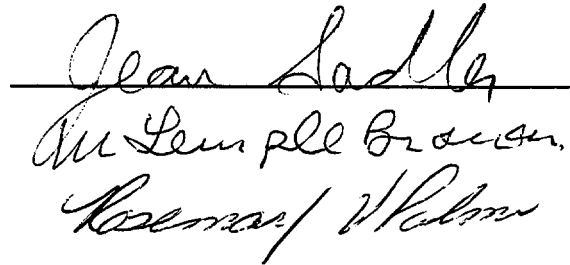 Jean Sadler
M Temple Brown
Rosemary V Palmer